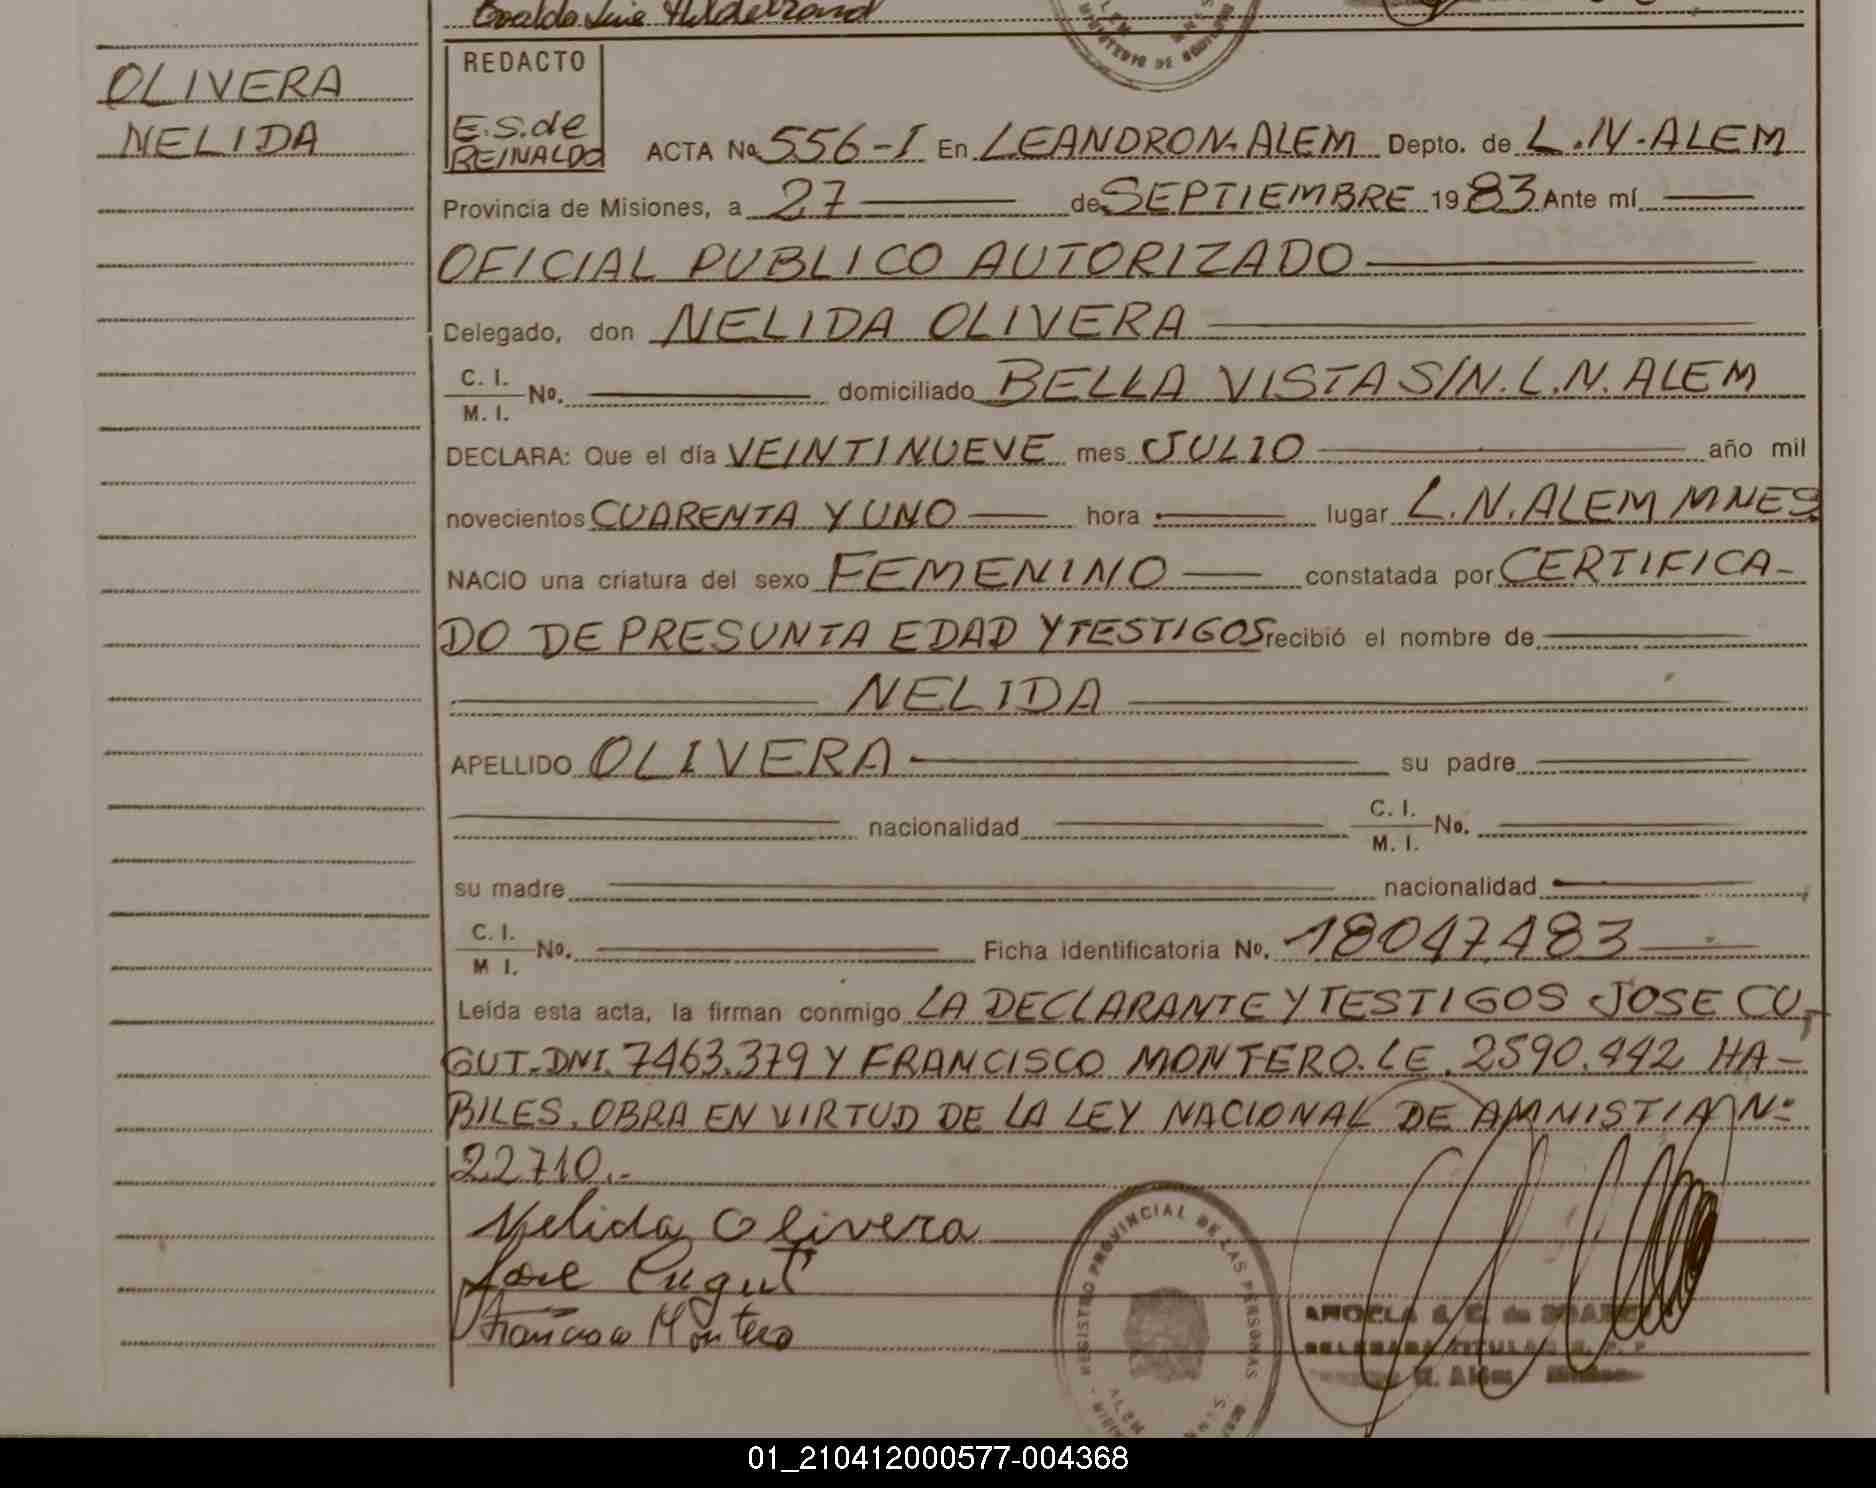 Luis Hildebrand
OLIVERA
NELIDA
REDACTO
E.S. de
REINALDO
ACTA No 556-I En LEANDRO N. ALEM Depto. de L.N. ALEM
Provincia de Misiones, a 27 de SEPTIEMBRE 1983 Ante mí
OFICIAL PUBLICO AUTORIZADO
Delegado, don NELIDA OLIVERA
C. I.
M. I. No. domiciliado BELLA VISTA S/N. L.N. ALEM
DECLARA: Que el día VEINTINUEVE mes JULIO año mil
novecientos CUARENTA Y UNO hora lugar L.N. ALEM MNES
NACIO una criatura del sexo FEMENINO constatada por CERTIFICA-
DO DE PRESUNTA EDAD Y TESTIGOS recibió el nombre de
NELIDA
APELLIDO OLIVERA su padre
nacionalidad C. I.
M. I. No.
su madre nacionalidad
C. I.
M I. No. Ficha identificatoria No. 18047483
Leída esta acta, la firman conmigo LA DECLARANTE Y TESTIGOS JOSE CU-
GUT-DNI. 7463.379 Y FRANCISCO MONTERO. LE. 2590.442 HA-
BILES. OBRA EN VIRTUD DE LA LEY NACIONAL DE AMNISTIA Nº
22710.-
Nelida Olivera
Jose Cugut
Francisco Montero
REGISTRO PROVINCIAL DE LAS PERSONAS
DELEGADA TITULAR R. P. P.
N. Alem Misiones
01_210412000577-004368